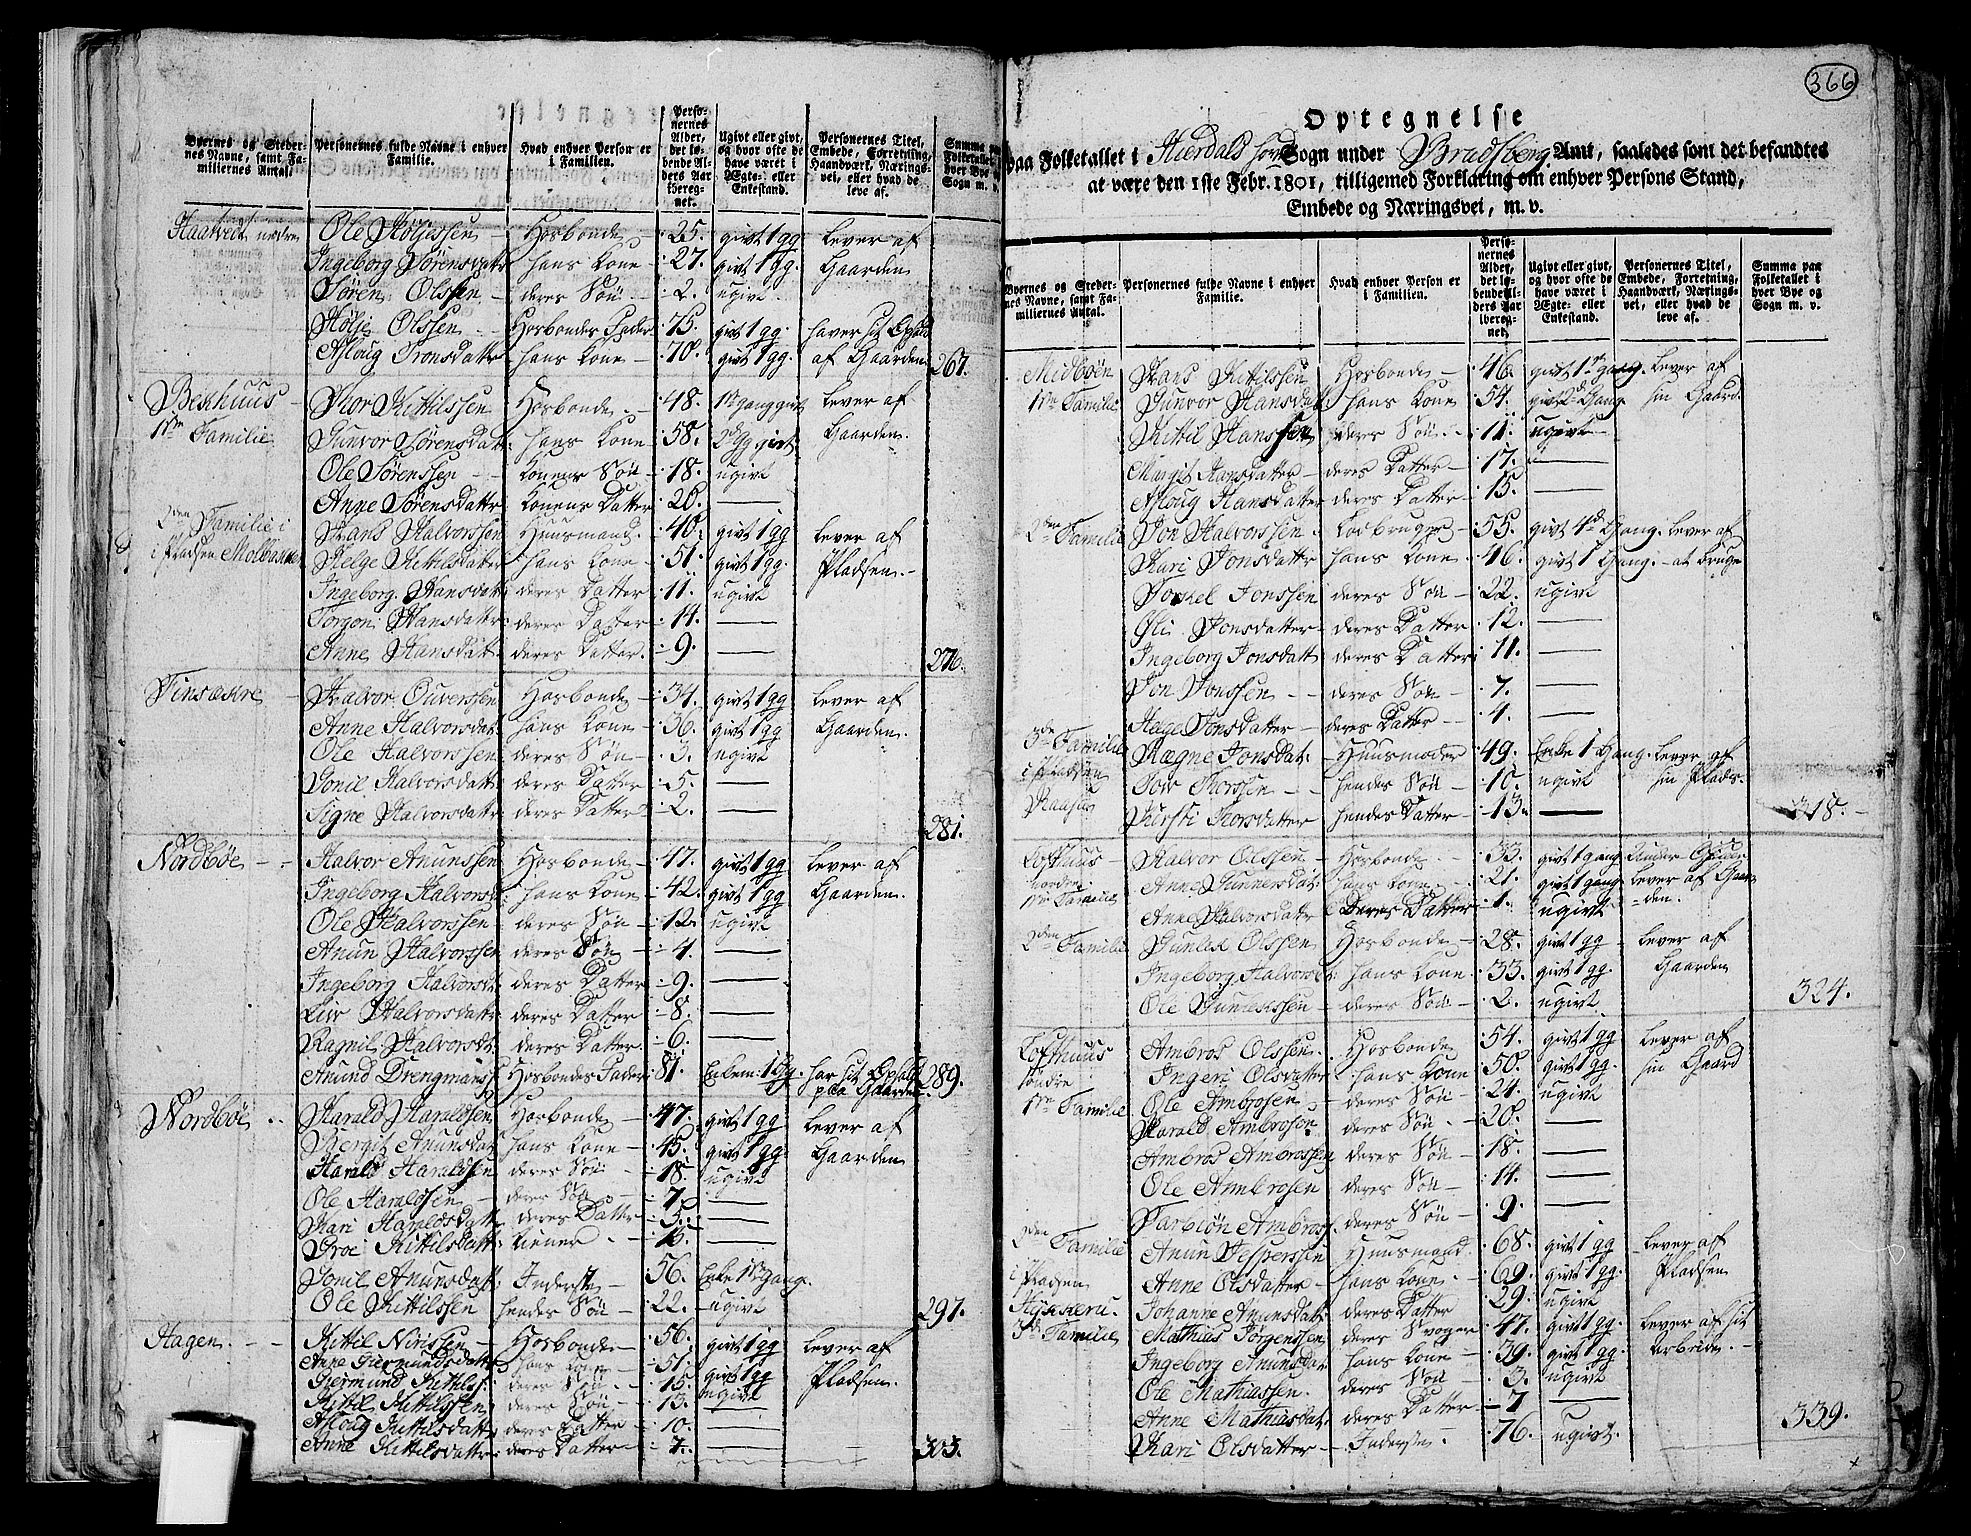 Byernes og Stedernes Navne, samt Familiernes Antal.
Personernes fulde Navne i enhver Familie.
Hvad enhver Person er i Familien.
Personernes Alder, det løbende Alders Aar iberegnet.
Ugivt eller givt, og hvor ofte de have været i Ægte- eller Enkestand.
Personernes Titel, Embede, Forretning, Haandværk, Næringsvei, eller hvad de leve af.
Summa paa Folketallet i hver Bye og Sogn m. v.
Haatvedt nedre Ole Høljessen Hosbonde 25. givt 1 gg lever af
Ingeborg Sørensdattr hans Kone 27. givt 1 gg. Gaarden
Søren Olssen deres Søn 2. ugivt
Hølje Olssen Hosbondes Fader 75. givt 1 gg haver sit Ophold
Asloug Tronsdattr hans Kone 70. givt 1 gg. af Gaarden 267.
Bekhuus Thor Kittilssen Hosbonde 48. 1ste Gang givt lever af
1ste Familie Gunvor Sørensdatt: hans Kone 58. 2d gg givt Gaarden.
Ole Sørenssen Konens Søn 18. ugivt
Anne Sørensdattr Konens Datter 26. —
2den Familie i Hans Halvorssen Huusmand 40. givt 1 gg. lever af
i Pladsen Helge Kittilsdatter hans Kone 51. givt 1 gg. Pladsen.
Ingeborg Hansdatt: deres Datter 11. ugivt
Torgon Hansdattr: deres Datter 14. —
Anne Hansdatt: deres Datter. 9. — 276.
Tinsæsire Halvor Ouverssen Hosbonde 34. givt 1 gg lever af
Anne Halvorsdat: hans Kone 36. givt 1 gg Gaarden.
Ole Halvorssen deres Søn 3. ugivt
Gonil Halvorsdattr deres Datter 5. —
Signe Halvorsdattr deres Datter 2. — 281.
Nordbøe Halvor Anunssen Hosbonde 47. givt 1 gg lever af
Ingeborg Halvorsd: hans Kone 42. givt 1 gg Gaarden.
Ole Halvorssen deres Søn 12. ugivt
Anun Halvorssen deres Søn 4. —
Ingeborg Halvorsd: deres Datter 9. —
Liv Halvorsdattr deres Datter 8. —
Ragnil Halvorsdt: deres Datter 6. —
Anund Drengmanss: Hosbondes Fader 81. Enkem: 1 Gg. har sit Ophold 289.
paa Gaarden.
Nordbøe Harald Haraldsen Hosbonde 47. givt 1 gg lever af
Bergit Anunsdat hans Kone 45. givt 1 gg. Gaarden
Harald Haraldsen deres Søn 18. ugivt
Ole Haraldssen deres Søn 7. —
Kari Haraldsdattr deres Datter 5. —
Groe Kittilsdatt: tiener 16. —
Gonil Anunsdatt: Inderste 56. Enke 1ste Gang.
Ole Kittilssen hendes Søn 22. ugivt 297.
Hagen Kittil Nirissen Hosbonde 56. givt 1 gg lever af
Anne Giermundsdattr hans Kone 51. givt 1 gg Pladsen.
Giermund Kittils: deres Søn 15. ugivt
Kittil Kittilssen deres Søn 13. —
Asloug Kittilsdatt: deres Datter 10. —
Anne Kittilsdatter deres Datter 7. — 303.
366
Optegnelse
paa Folketallet i Hierdals Sogn under Bradsberg Amt, saaledes som det befandtes
at være den 1ste Febr. 1801, tilligemed Forklaring om enhver Persons Stand,
Embede og Næringsvei, m. v.
Byernes og Stedernes Navne, samt Familiernes Antal.
Personernes fulde Navne i enhver Familie.
Hvad enhver Person er i Familien.
Personernes Alder, det løbende Alders Aar iberegnet.
Ugivt eller givt, og hvor ofte de have været i Ægte- eller Enkestand.
Personernes Titel, Embede, Forretning, Haandværk, Næringsvei, eller hvad de leve af.
Summa paa Folketallet i hver Bye og Sogn m. v.
Midbøen Hans Kittilssen Hosbonde 46. givt 1ste gang. lever af
1ste Familie Gunvor Hansdat: hans Kone 54. givt 2d Gang sin Gaard.
Kittil Hanssen deres Søn 11. ugivt
Margit Hansdatter deres Datter 17. —
Asloug Hansdatter deres Datter 15. —
2den Familie Jon Halvorssen Lodbruger 55. givt 4de Gang. lever af
Kari Jonsdattr hans Kone 46. givt 1 Gang. at bruge
Torkel Jonssen deres Søn 22. ugivt
Øli Jonsdatter deres Datter 12. —
Ingeborg Jonsdatt: deres Datter 11. —
Jon Jonssen deres Søn 7. —
Helge Jonsdatter deres Datter 4. —
3de Familie Rægne Jonsdat: Huusmoder 49. Enke 1 Gang. lever af
i Pladsen Tov Thorssen hendes Søn 10. ugivt sin Plads.
Kirsti Thorsdatter hendes Datter 13. — 318.
Lofthuus Halvor Olssen Hosbonde 33. givt 1 gang
nordre Anne Gunnersdat: hans Kone 21. givt 1 gang lever af Gaarden.
1ste Familie Anne Halvorsdattr deres Datter 1. ugivt
2den Familie Gunleik Olssen Hosbonde 28. givt 1 gg lever af
Ingeborg Halvorsdt: hans Kone 33. givt 1 gg. Gaarden
Ole Gunleikssen deres Søn 2. ugivt 324.
Lofthuus Ambros Olssen Hosbonde 54. givt 1 gg lever af
søndre Ingeri Olsdatter hans Kone 50. givt 1 gg. sin Gaard
1ste Familie Ole Ambrosen deres Søn 24. ugivt
Harald Ambrosen deres Søn 20. —
Ambros Ambrossen deres Søn 18. —
Ole Ambrosen deres Søn 14. —
Tarbiøn Ambross: deres Søn 9. —
2den Familie Anun Jesperssen Huusmand 68. givt 1 gg lever af
i Pladsen Anne Olsdatter hans Kone 69. givt 1 gg. Pladsen
Johanne Anunsdat: deres Datter 29. ugivt
3de Familie Mathias Jørgenssen deres Svoger 47. givt 1 gg. lever af sit
Ingeborg Anunsdat: hans Kone 39. givt 1 gg Arbeide.
Ole Mathiassen. deres Søn 3. ugivt
Anne Mathiasdat: deres Datter 7 —
Kari Olsdatter Inderste 76. ugivt. 339.